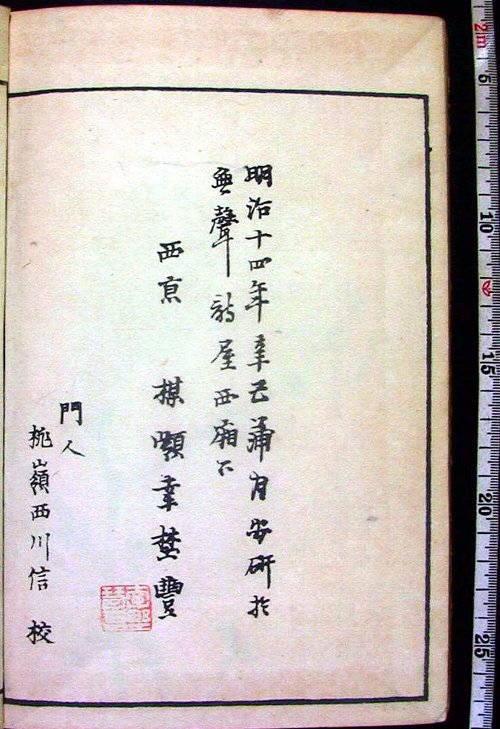 明治十四年辛巳蒲月安研於
無聲詩屋西廂下
西京 楳嶺幸埜豐
門人
桃嶺西川信 校
2m
5
10
15
20
25